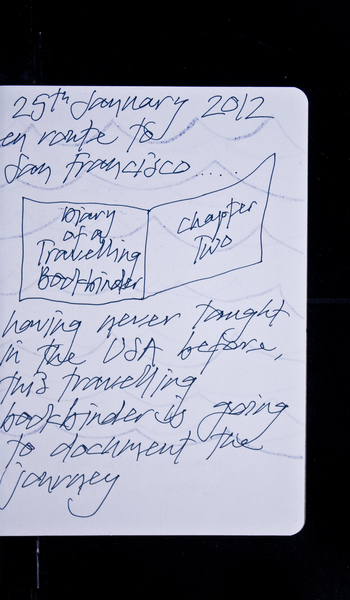 25th January 2012
en route to
San Francisco.....
Diary
of a
Travelling
Bookbinder
Chapter
Two
having never taught
in the USA before,
this travelling
bookbinder is going
to document the
journey